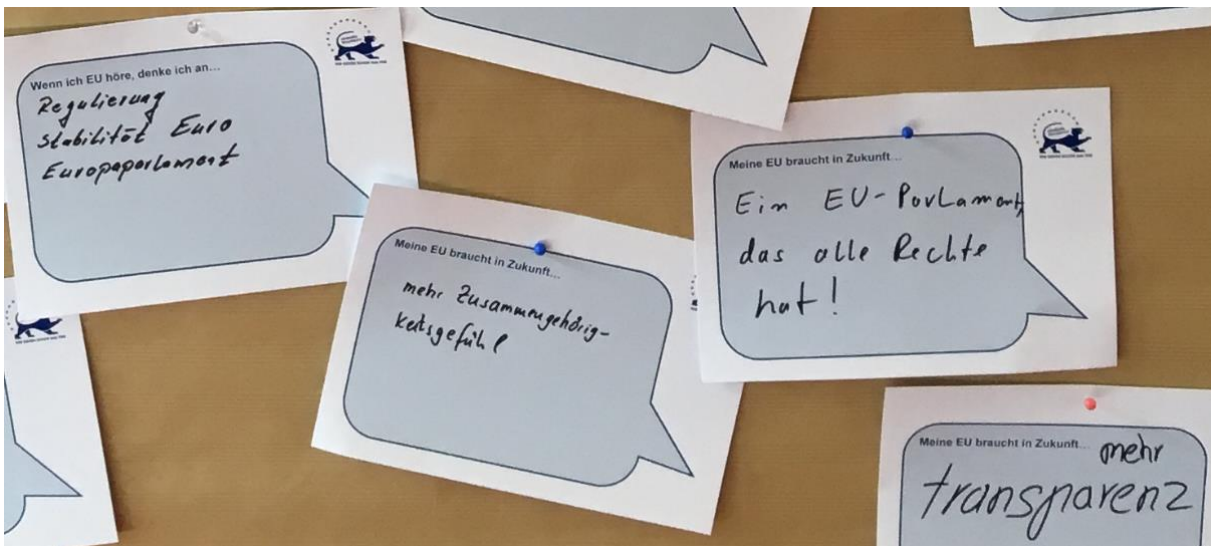 Wenn ich EU höre, denke ich an...
Regulierung
Stabilität Euro
Europaparlament
Meine EU braucht in Zukunft...
mehr Zusammengehörig-
keitsgefühl
Meine EU braucht in Zukunft...
Ein EU-Parlament,
das alle Rechte
hat!
Meine EU braucht in Zukunft...
mehr
transparenz